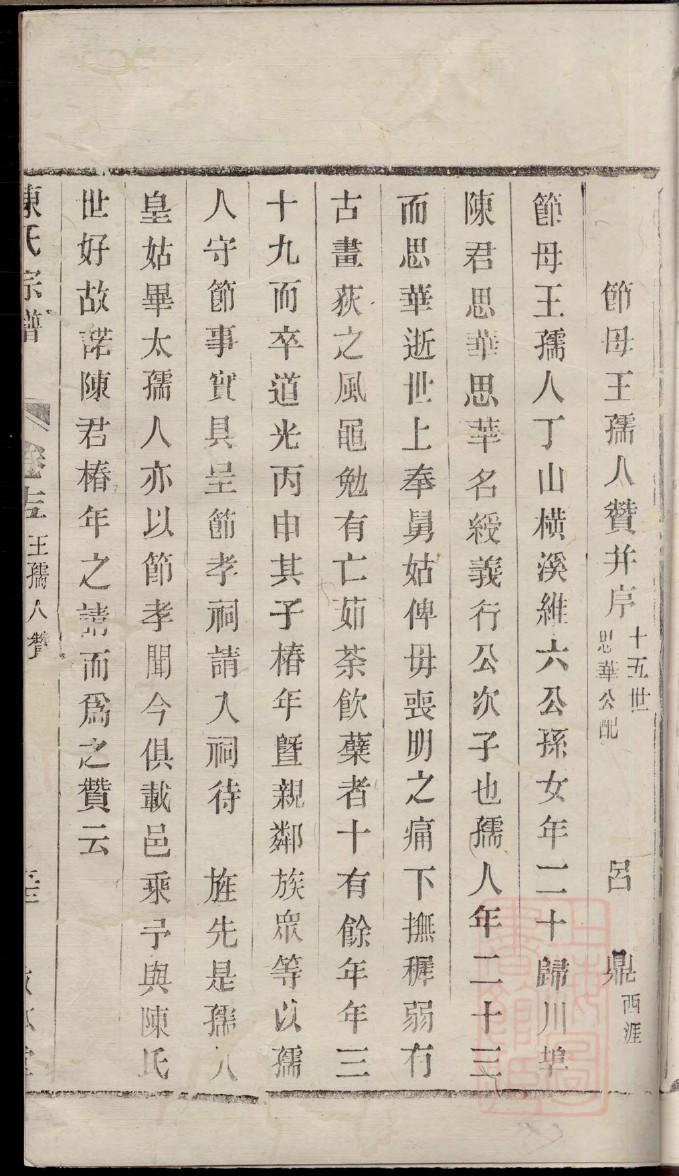 節母王孺人贊并序 十五世思華公配 呂鼎 西涯
節母王孺人丁山橫溪維六公孫女年二十歸川埠
陳君思華思華名綬義行公次子也孺人年二十三
而思華逝世上奉舅姑俾毋喪明之痛下撫穉弱有
古畫荻之風黽勉有亡茹荼飲蘗者十有餘年年三
十九而卒道光丙申其子椿年暨親鄰族眾等以孺
人守節事實具呈節孝祠請入祠待 旌先是孺人
皇姑畢太孺人亦以節孝聞今俱載邑乘予與陳氏
世好故諾陳君椿年之請而為之贊云
陳氏宗譜 卷十五 王孺人贊